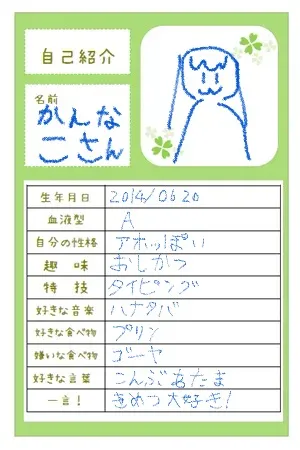 自己紹介
名前
かんな
こさん
生年月日 2014/06 20
血液型 A
自分の性格 アホっぽい
趣味 おしかつ
特技 タイピング
好きな音楽 ハナタバ
好きな食べ物 プリン
嫌いな食べ物 ゴーヤ
好きな言葉 こんぶあたま
一言! きめつ大好き!